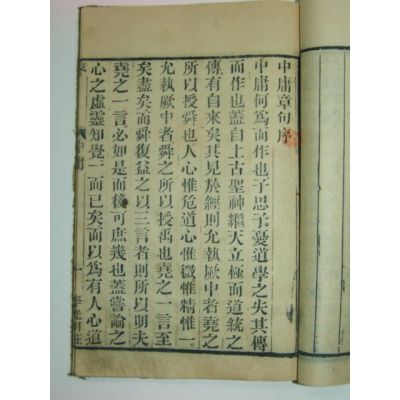 中庸章句序
中庸何爲而作也子思子憂道學之失其傳
而作也蓋自上古聖神繼天立極而道統之
傳有自來矣其見於經則允執厥中者堯之
所以授舜也人心惟危道心惟微惟精惟一
允執厥中者舜之所以授禹也堯之一言至
矣盡矣而舜復益之以三言者則所以明夫
堯之一言必如是而後可庶幾也蓋嘗論之
心之虛靈知覺一而已矣而以爲有人心道
中庸